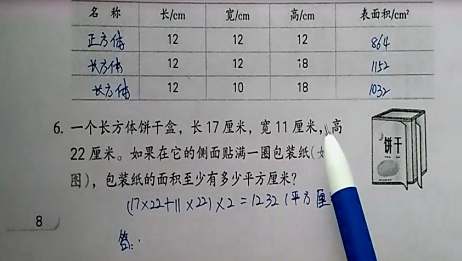 名 称 长/cm 宽/cm 高/cm 表面积/cm²
正方体 12 12 12 864
长方体 12 12 18 1152
长方体 12 10 18 1032
6. 一个长方体饼干盒，长 17 厘米，宽 11 厘米，高
22 厘米。如果在它的侧面贴满一圈包装纸(如
图)，包装纸的面积至少有多少平方厘米?
饼干
(17×22+11×22)×2=1232(平方厘
答:
8